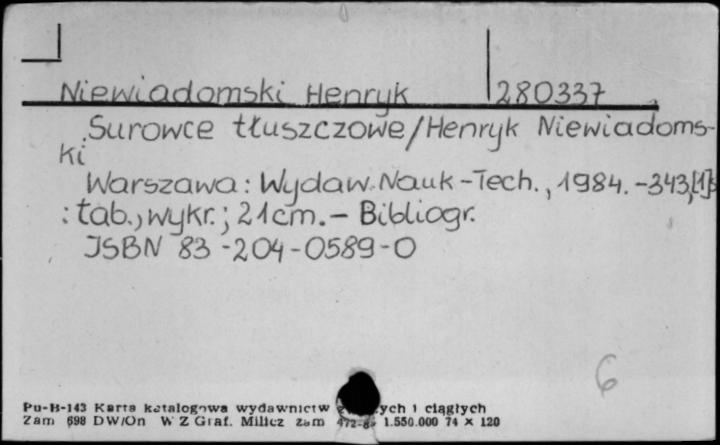 Niewiadomski Henryk 280337
Surowce tłuszczowe/Henryk Niewiadoms-
ki
Warszawa: Wydaw. Nauk-Tech., 1984. -343,[1]s
: tab., wykr.; 21cm. - Bibliogr.
ISBN 83-204-0589-0
6
Pu-B-143 Karta katalogowa wydawnictw ych i ciągłych
Zam 698 DW/On W Z Graf. Milicz zam 1.550.000 74 x 120